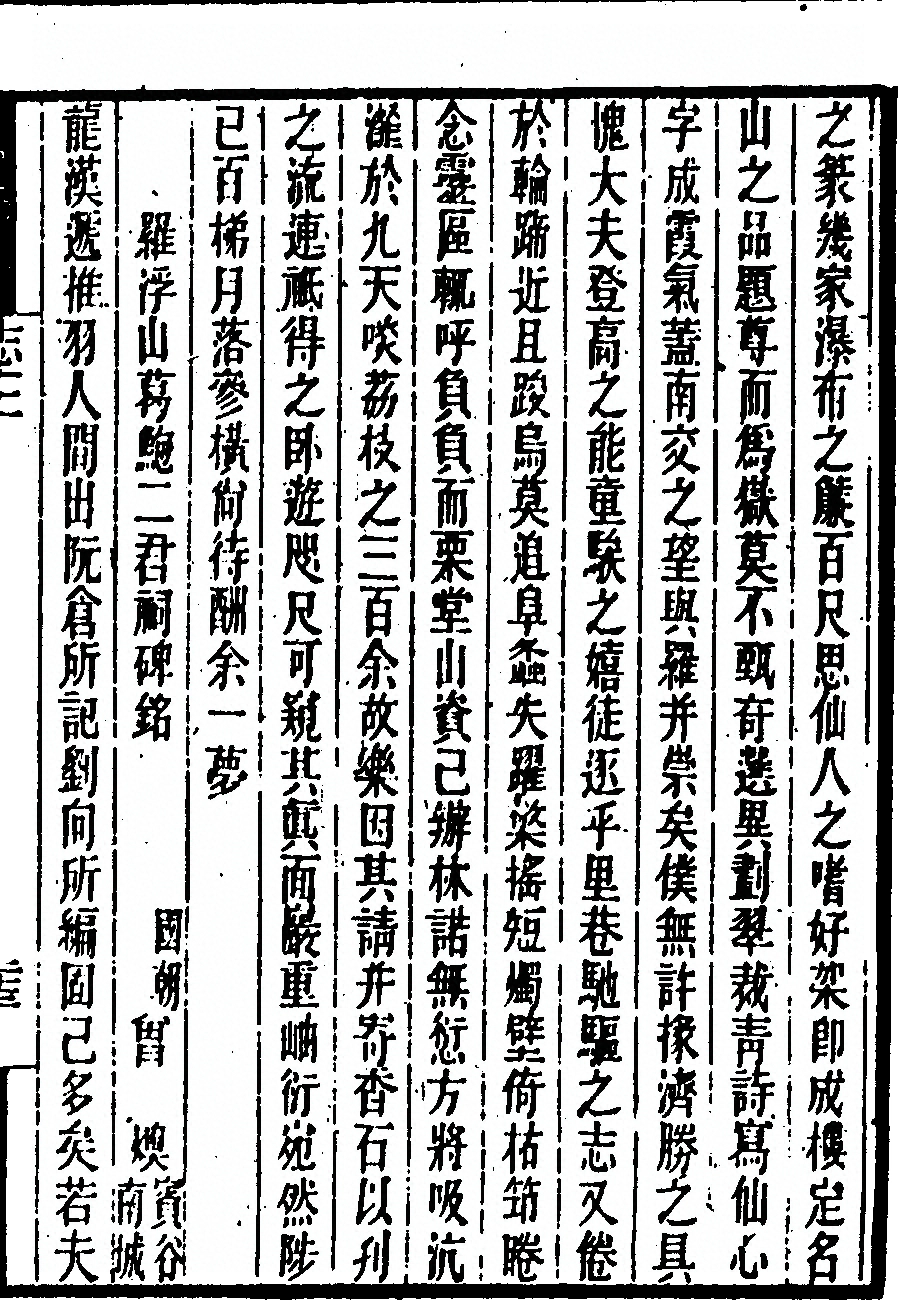 之篆幾家瀑布之簾百尺思仙人之嗜好架卽成樓定名
山之品題尊而爲嶽莫不甄奇選異劃翠裁靑詩寫仙心
字成霞氣蓋南交之望與羅并崇矣僕無許掾濟勝之具
愧大夫登高之能童騃之嬉徒逐乎里巷馳驅之志又倦
於輪蹄近且踆烏莫追阜螽失躍梁搖短燭壁倚枯筇睠
念靈區輒呼負負而栗堂山資已辦林諾無愆方將吸沆
瀣於九天啖荔枝之三百余故樂因其請并寄杳石以刊
之流連祗得之臥遊咫尺可窺其眞面巖重岫衍宛然陟
已百梯月落參橫倘待酬余一夢
羅浮山葛鮑二君祠碑銘 國朝曾燠賓谷南城
龍漢遞推羽人間出阮倉所記劉向所編固已多矣若夫
志二